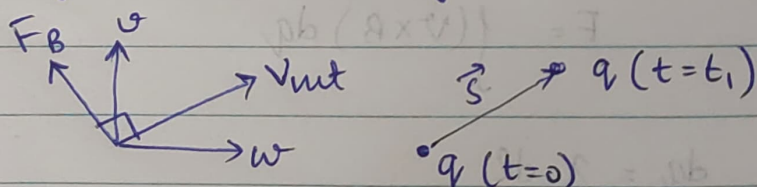 F_B v
V_net
w
S⃗ q (t=t₁)
q (t=0)